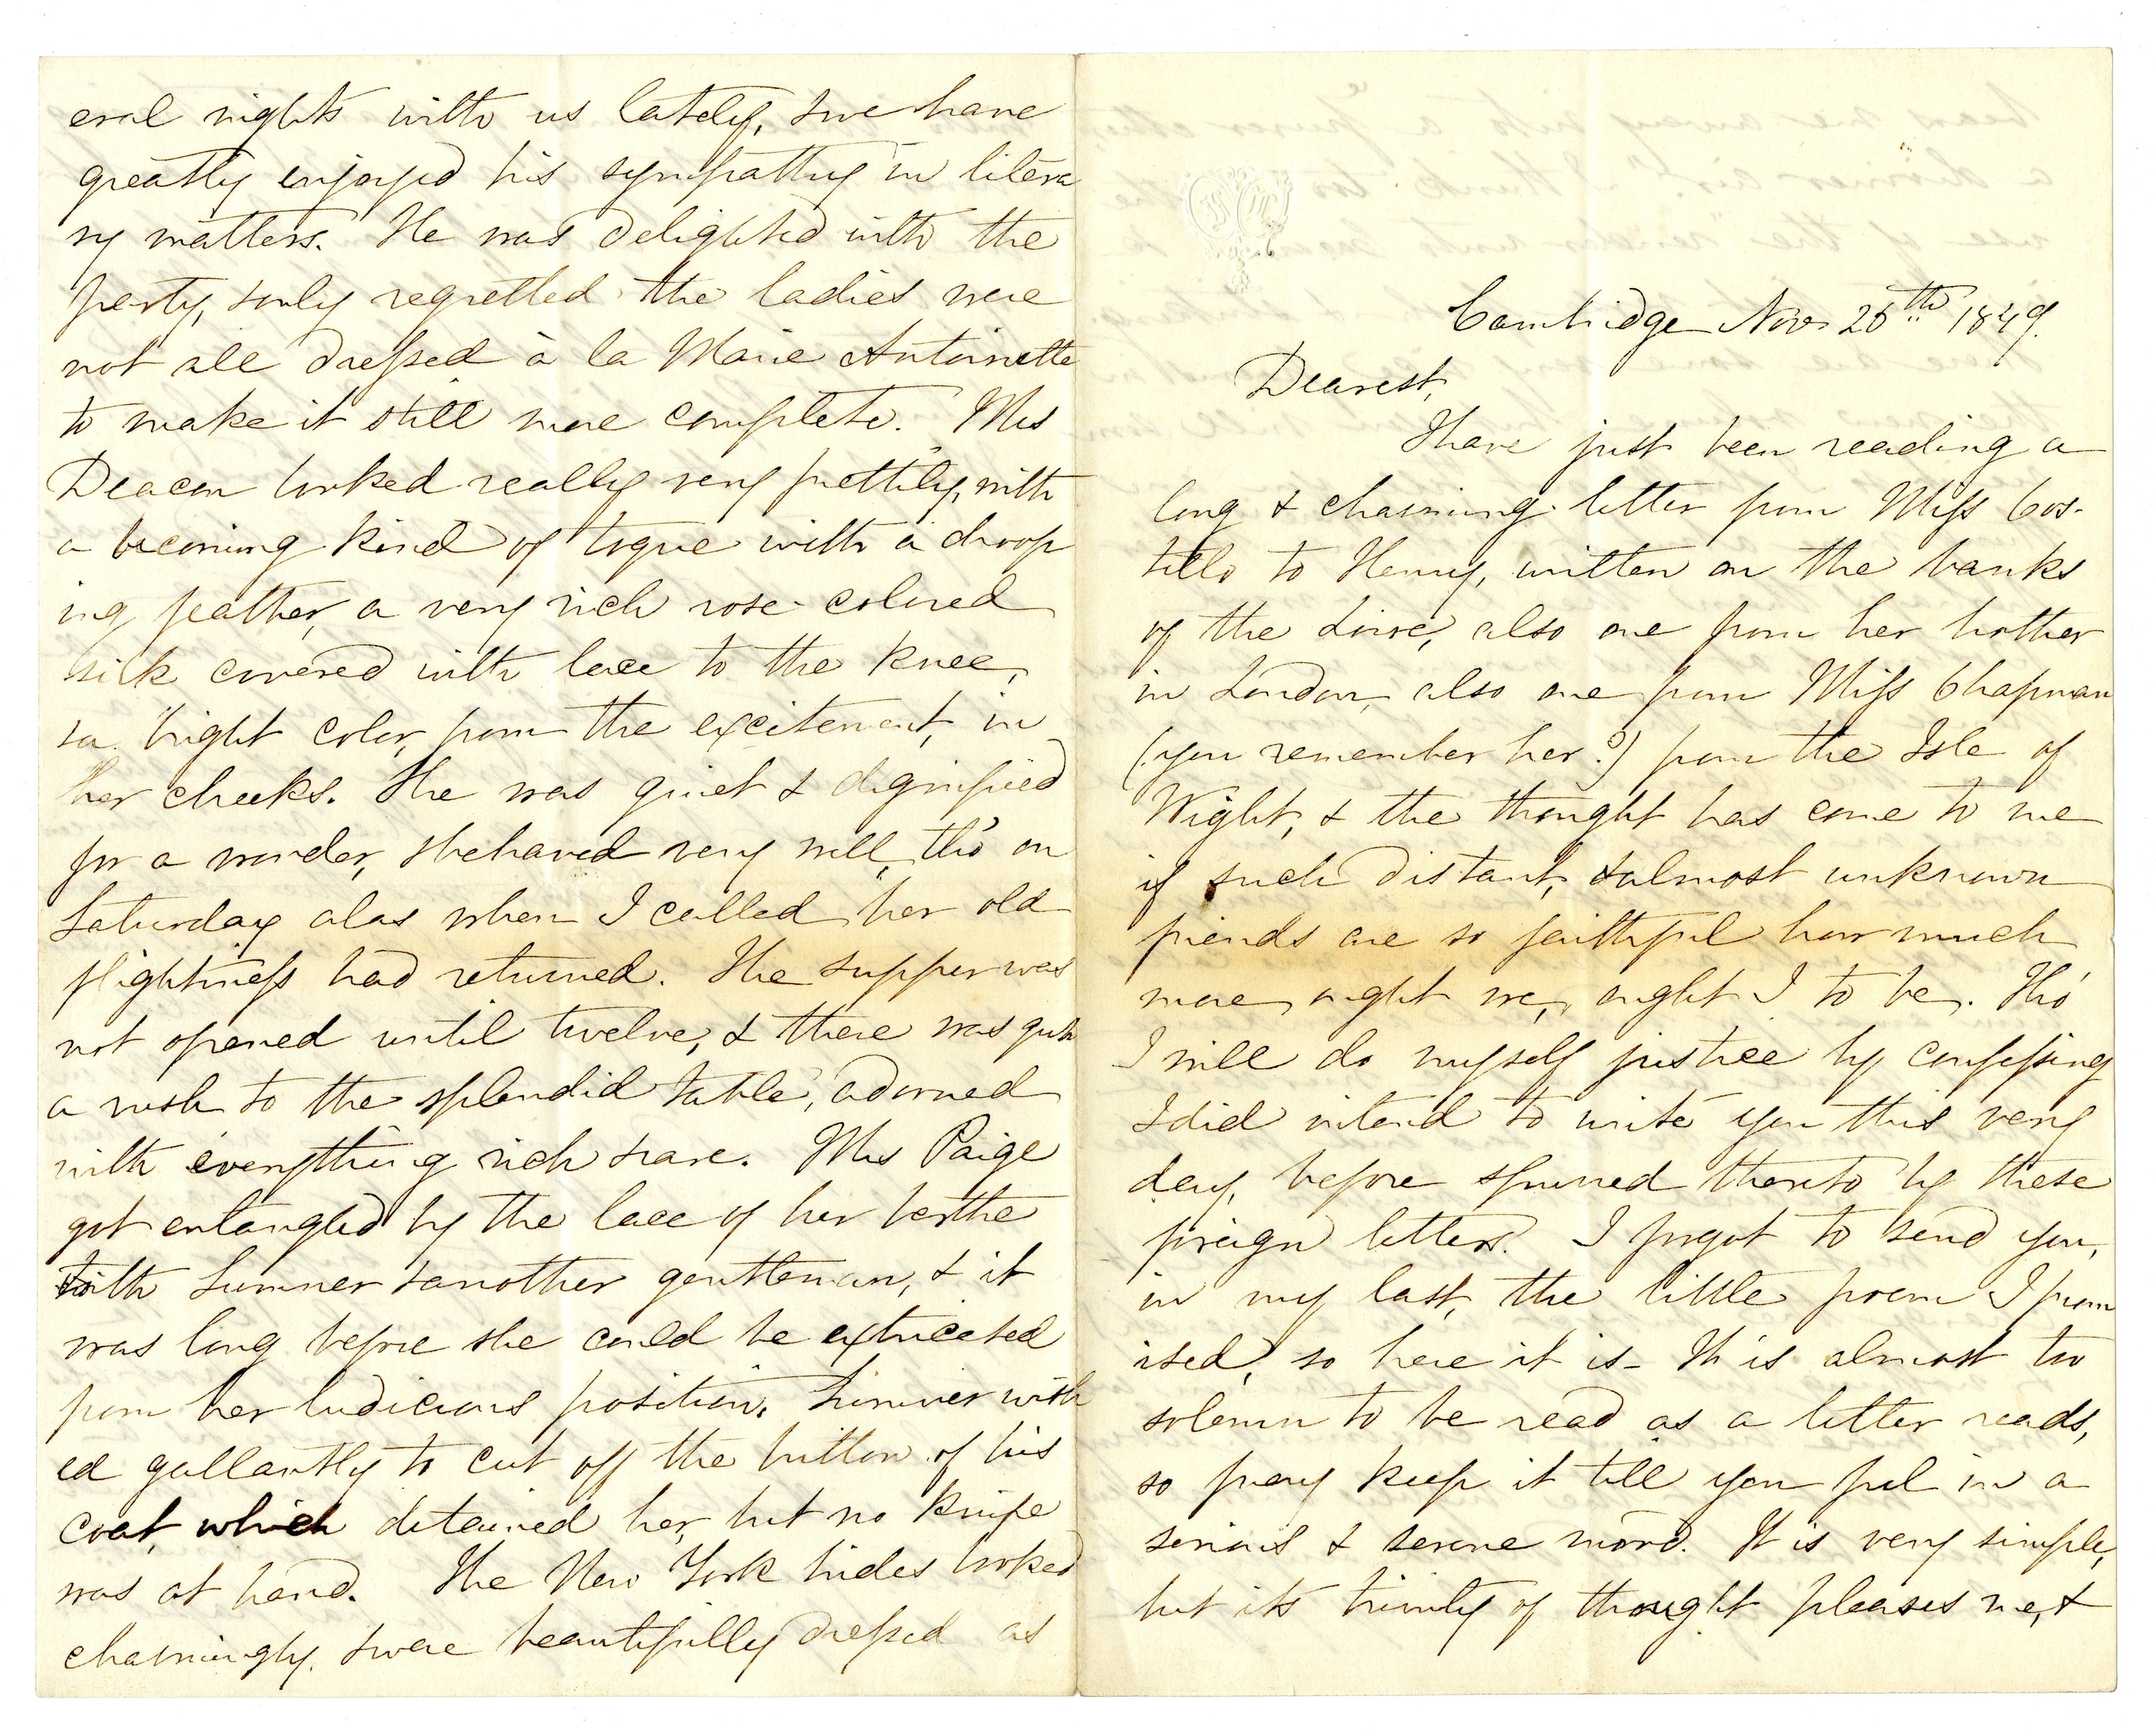 eral nights with us lately, & we have
greatly enjoyed his sympathy in litera
ry matters. He was delighted with the
party, & only regretted the ladies were
not all dressed à la Marie Antoinette
to make it still more complete. Mrs
Deacon looked really very prettily, with
a becoming kind of toque with a droop
ing feather, a very rich rose-colored
silk covered with lace to the knee,
& a bright color, from the excitement, in
her cheeks. She was quiet & dignified
for a wonder, & behaved very well, tho' on
Saturday alas when I called her old
flightiness had returned. The supper was
not opened until twelve, & there was quite
a rush to the splendid table, adorned
with everything rich & rare. Mrs Paige
got entangled by the lace of her berthe
with Sumner & another gentleman, & it
was long before she could be extricated
from her ludicrous position. Sumner wish
ed gallantly to cut off the button of his
coat, which detained her, but no knife
was at hand. The New York brides looked
charmingly, & were beautifully dressed as
Cambridge Nov 26th 1849.
Dearest,
I have just been reading a
long & charming letter from Miss Cos-
tello to Henry, written on the banks
of the Loire, also one from her brother
in London, also one from Miss Chapman
(you remember her?) from the Isle of
Wight, & the thought has come to me
if such distant, & almost unknown
friends are so faithful how much
more ought we, ought I to be. Tho'
I will do myself justice by confessing
I did intend to write you this very
day, before spurred thereto by these
foreign letters. I forgot to send you,
in my last, the little poem I prom
ised, so here it is - It is almost too
solemn to be read as a letter reads,
so pray keep it till you feel in a
serious & serene mood. It is very simple,
but its trinity of thought pleases me, &